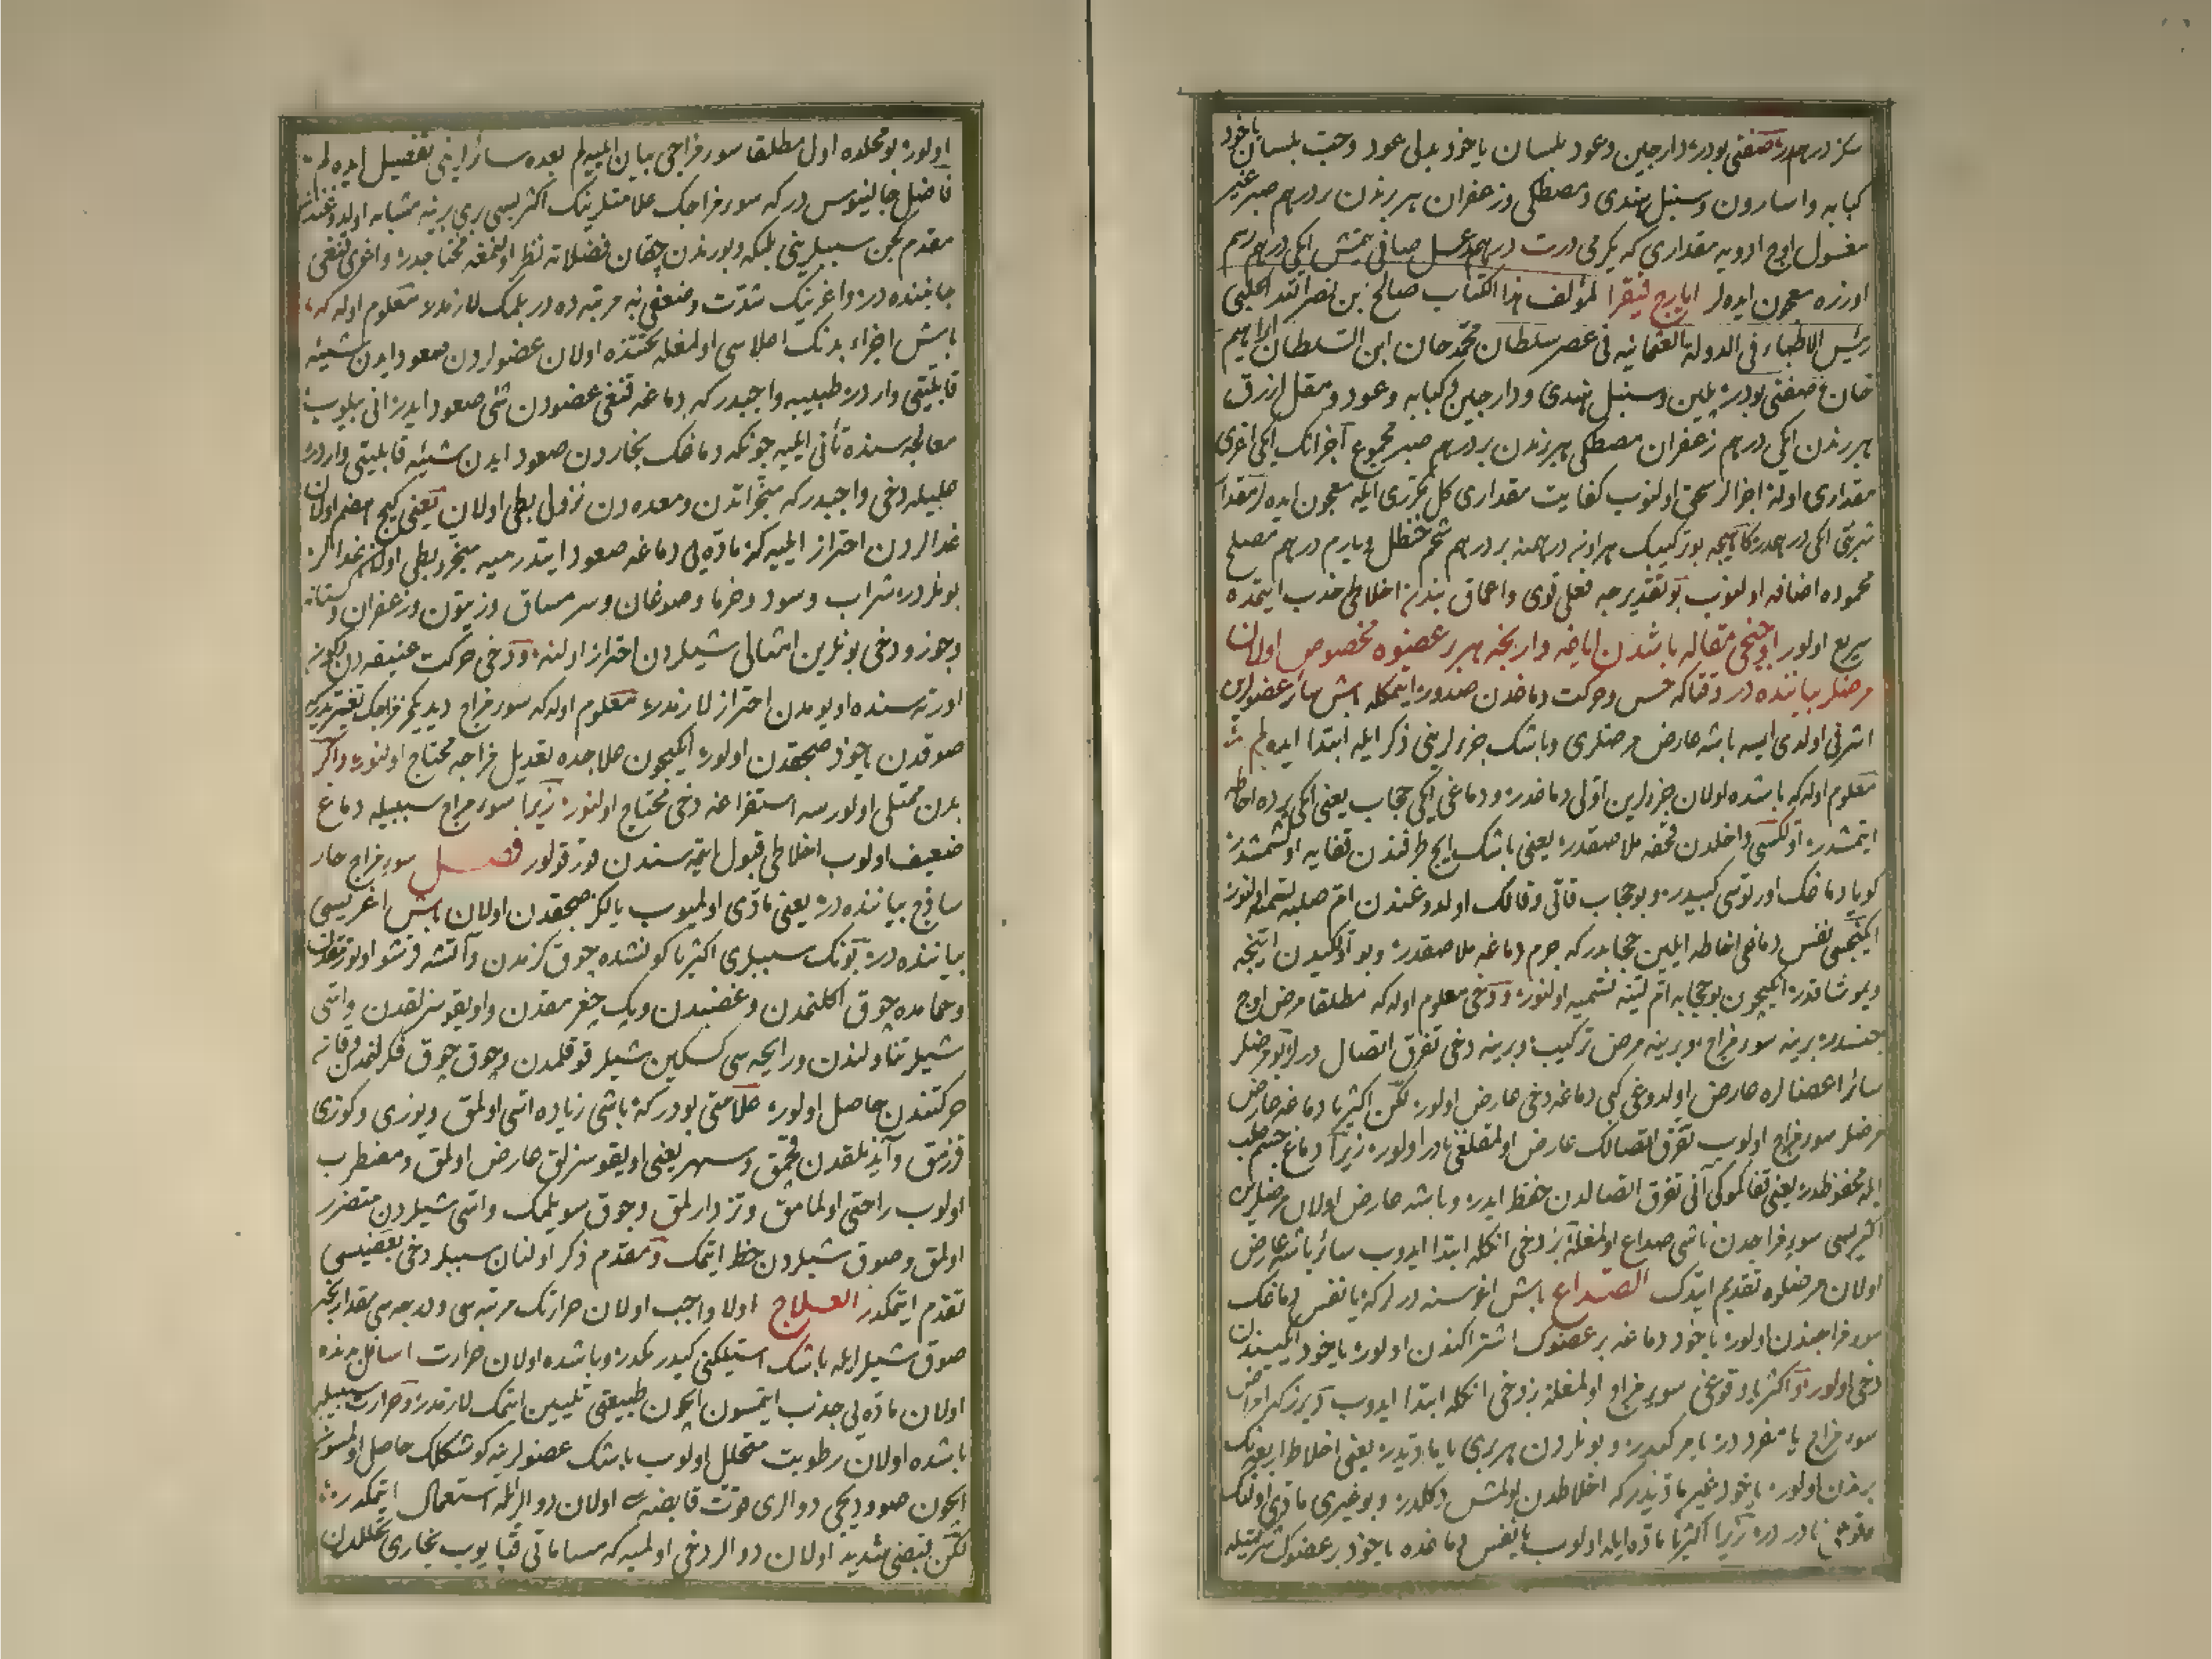 سكز درهمدر صفتی بودر دارچین وعود بلسان یاخود بدلی عود وحب بلسان یاخود
كبابه واسارون وسنبل هندی ومصطكی وزعفران هر برندن بر درهم صبر غیر
مغسول اوچ ادویه مقداری كه یكرمی درت درهمدر عسل صافی یتمش ایكی درهم
اوزره معجون ایده لر ایارج فیقرا لمؤلف هذا الكتاب صالح بن نصر الله الحلبی
رئیس الاطباء فی الدولة العثمانیه فی عصر سلطان محمد خان ابن السلطان ابراهیم
خان صفتی بودر وسنبل هندی ودارچین وكبابه وعود ومقل ازرق
هر برندن ایكی درهم زعفران مصطكی هر برندن بر درهم صبر مجموع اجزانك ایكی
مقداری اولة اجزالر سحق اولنوب كفایت مقداری كل مكرری ایله معجون ایده لر مقدار
شربتی ایكی درهمدر بو تركیبك هر اونه درهمنه بر درهم شحم حنظل ویارم درهم مصلح
محموده اضافه اولنوب بو تقدیرجه فعلی قوی واعماق بدندن اخلاطی جذب ایتمده
سریع اولور اوچنجی مقاله باشدن ایاغه وارنجه هر بر عضوه مخصوص اولان
مرضلر بیاننده در وقتاكه حس وحركت دماغدن صدور ایتمكله باش سائر عضولرین
اشرفی اولدی ایسه باشه عارض مرضلری وباشك جزءلرینی ذكر ایله ابتدا ایده لم
معلوم اوله كه باشده اولان جزءلرین اولی دماغدر ودماغی ایكی حجاب یعنی ایكی پرده احاطه
ایتمشدر اولكیسی داخلدن قحفه ملاصقدر یعنی باشك ایچ طرفندن قفایه اولشمشدر
كویا دماغك اورتوسی كبیدر وبو حجاب قاتی وقالك اولدوغندن ام صلبه تسمیه اولنور
ایكنجیسی نفس دماغی احاطه ایلین حجابدر كه جرم دماغه ملاصقدر وبو اولكیدن اینجه
ویموشاقدر ایكیچون بو حجابه ام لینه تسمیه اولنور ودخی معلوم اوله كه مطلقا مرض اوچ
جنسدر برینه سوء مزاج وبرینه مرض تركیب وبرینه دخی تفرق اتصال درلر بو مرضلر
سائر اعضالره عارض اولدوغی كبی دماغه دخی عارض اولور لكن اكثریا دماغه عارض
مرضلر سوء مزاج اولوب تفرق اتصالك عارض اولمقلغی نادر اولور زیرا دماغ جسم صلب
ایله محفوظدر یعنی قفا كموكی آنی تفرق اتصالدن حفظ ایدر وباشه عارض اولان مرضلرین
اكثریسی سوء مزاجدن ناشی صداع اولمغله بز دخی انكله ابتدا ایدوب سائر باشه عارض
اولان مرضلره تقدیم ایتدك الصداع باش اغریسنه درلر كه یا نفس دماغك
سوء مزاجندن اولور یاخود دماغه بر عضوك اشتراكندن اولور یاخود ایكیسندن
دخی اولور و اكثریا وقوعی سوء مزاج اولمغله بز دخی انكله ابتدا ایدوب
سوء مزاج یا مفرددر یا مركبدر وبونلردن هر بری یا مادیدر یعنی اخلاط اربعه نك
برندن اولور یاخود غیر مادیدر كه اخلاطدن اولمش دكلدر وبو غیری مادی اولانك
وقوعی نادردر زیرا اكثریا ماده ایله اولوب یا نفس دماغده یاخود بر عضوك شركتیله
اولور بو محلده اول مطلقا سوء مزاجی بیان ایلیه لم بعده سائرلرینی تفصیل ایده لم
فاضل جالینوس در كه سوء مزاجك علامتلرینك اكثریسی بری برینه مشابه اولدوغندن
مقدم كچن سببلرینی بلمكه وبورندن چقان فضلاته نظر اولنمغه محتاجدر واغری قنغی
جانبنده در واغرینك شدت وضعفی نه مرتبه ده در بلمك لازمدر معلوم اوله كه
باش اجزاء بدنك اعلاسی اولمغله تحتنده اولان عضولردن صعود ایدن شیئه
قابلیتی واردر طبیبه واجبدر كه دماغه قنغی عضودن شی صعود ایدر انی بیلوب
معالجه سنده تأنی ایلیه چونكه دماغك بخاردن صعود ایدن شیئه قابلیتی واردر
علیله دخی واجبدر كه مبخراتدن ومعده دن نزولی بطی اولان یعنی كیچ هضم اولان
غدالردن احتراز ایلیه كه ماده یی دماغه صعود ایتدرمیه مبخر وبطی اولان غدالر
بونلردر شراب وسود وخرما وصوغان وسرمساق وزیتون وزعفران
وجوز ودخی بونلرین امثالی شیلردن احتراز اولنه ودخی حركت عنیفه دن
اورته سنده اویومدن احتراز لازمدر معلوم اوله كه سوء مزاج دیدیكمز مزاجك تغیریدر كه
صوقدن یاخود صیجقدن اولور ایكیچون علاجده تعدیل مزاجه محتاج اولنور واكر
بدن ممتلی اولورسه استفراغه دخی محتاج اولنور زیرا سوء مزاج سببیله دماغ
ضعیف اولوب اخلاطی قبول ایتمه سندن قورقولور فصل سوء مزاج حار
ساذج بیاننده در یعنی مادی اولمیوب یالكز صیجقدن اولان باش اغریسی
بیاننده در بونك سببلری اكثریا كونشده چوق كزمدن وآتشه قرشو اوتورمقدن
وحمامده چوق اكلنمدن وغضبدن وپك چغرمقدن واویقوسزلقدن واسی
شیلر تناولندن ورایحه سی كسكین شیلر قوقلمدن وچوق چوق فكرلنمدن
حركتندن حاصل اولور علامتی بودر كه باشی زیاده اسی اولمق ویوزی وكوزی
قزرمق وآیدنلقدن قچمق وسهر یعنی اویقوسزلق عارض اولمق ومضطرب
اولوب راحتی اولمامق وتز دارلمق وچوق سویلمك واسی شیلردن متضرر
اولمق وصوق شیلردن حظ ایتمك ومقدم ذكر اولنان سببلر دخی بعضیسی
تقدم ایتمكدر العلاج اولا واجب اولان حرارتك مرتبه سی ودرجه سی مقدارنجه
صوق شیلر ایله باشك استیلكنی كیدرمكدر وباشده اولان حرارت اسافل بدنده
اولان ماده یی جذب ایتمسون ایچون طبیعتی تلیین ایتمك لازمدر وحرارت سببیله
باشده اولان رطوبت متحلل اولوب باشك عضولرینه كوشكلك حاصل اولمسون
ایچون صوودیجی دوالری قوت قابضه سی اولان دوالر ایله استعمال ایتمكدر
لكن قبضی شدید اولان دوالر دخی اولمیه كه مساماتی قپایوب بخاری تحللدن